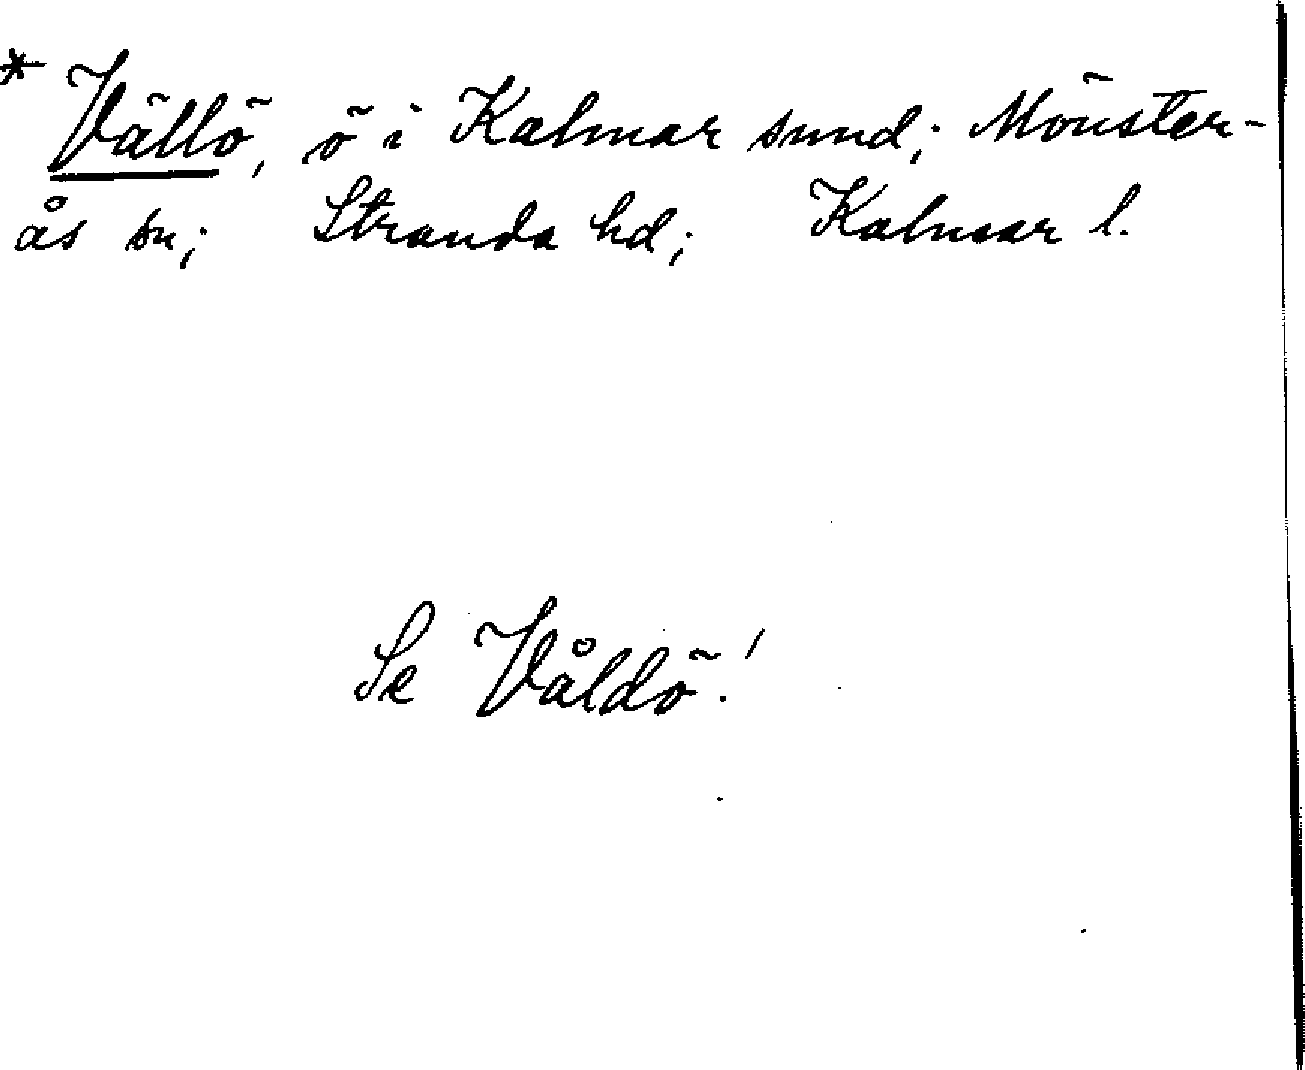 * Vällö, ö i Kalmar sund; Mönster-
ås sn; Stranda hd; Kalmar l.
Se Våldö!